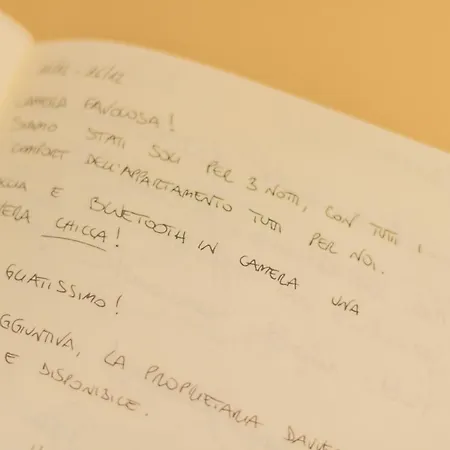 - 16/12
CAMERA FAVOLOSA!
SIAMO STATI SOLI PER 3 NOTTI, CON TUTTI I
COMFORT DELL'APPARTAMENTO TUTTI PER NOI.
E BLUETOOTH IN CAMERA UNA
VERA CHICCA!
GUATISSIMO!
AGGIUNTIVA, LA PROPRIETARIA
E DISPONIBILE.